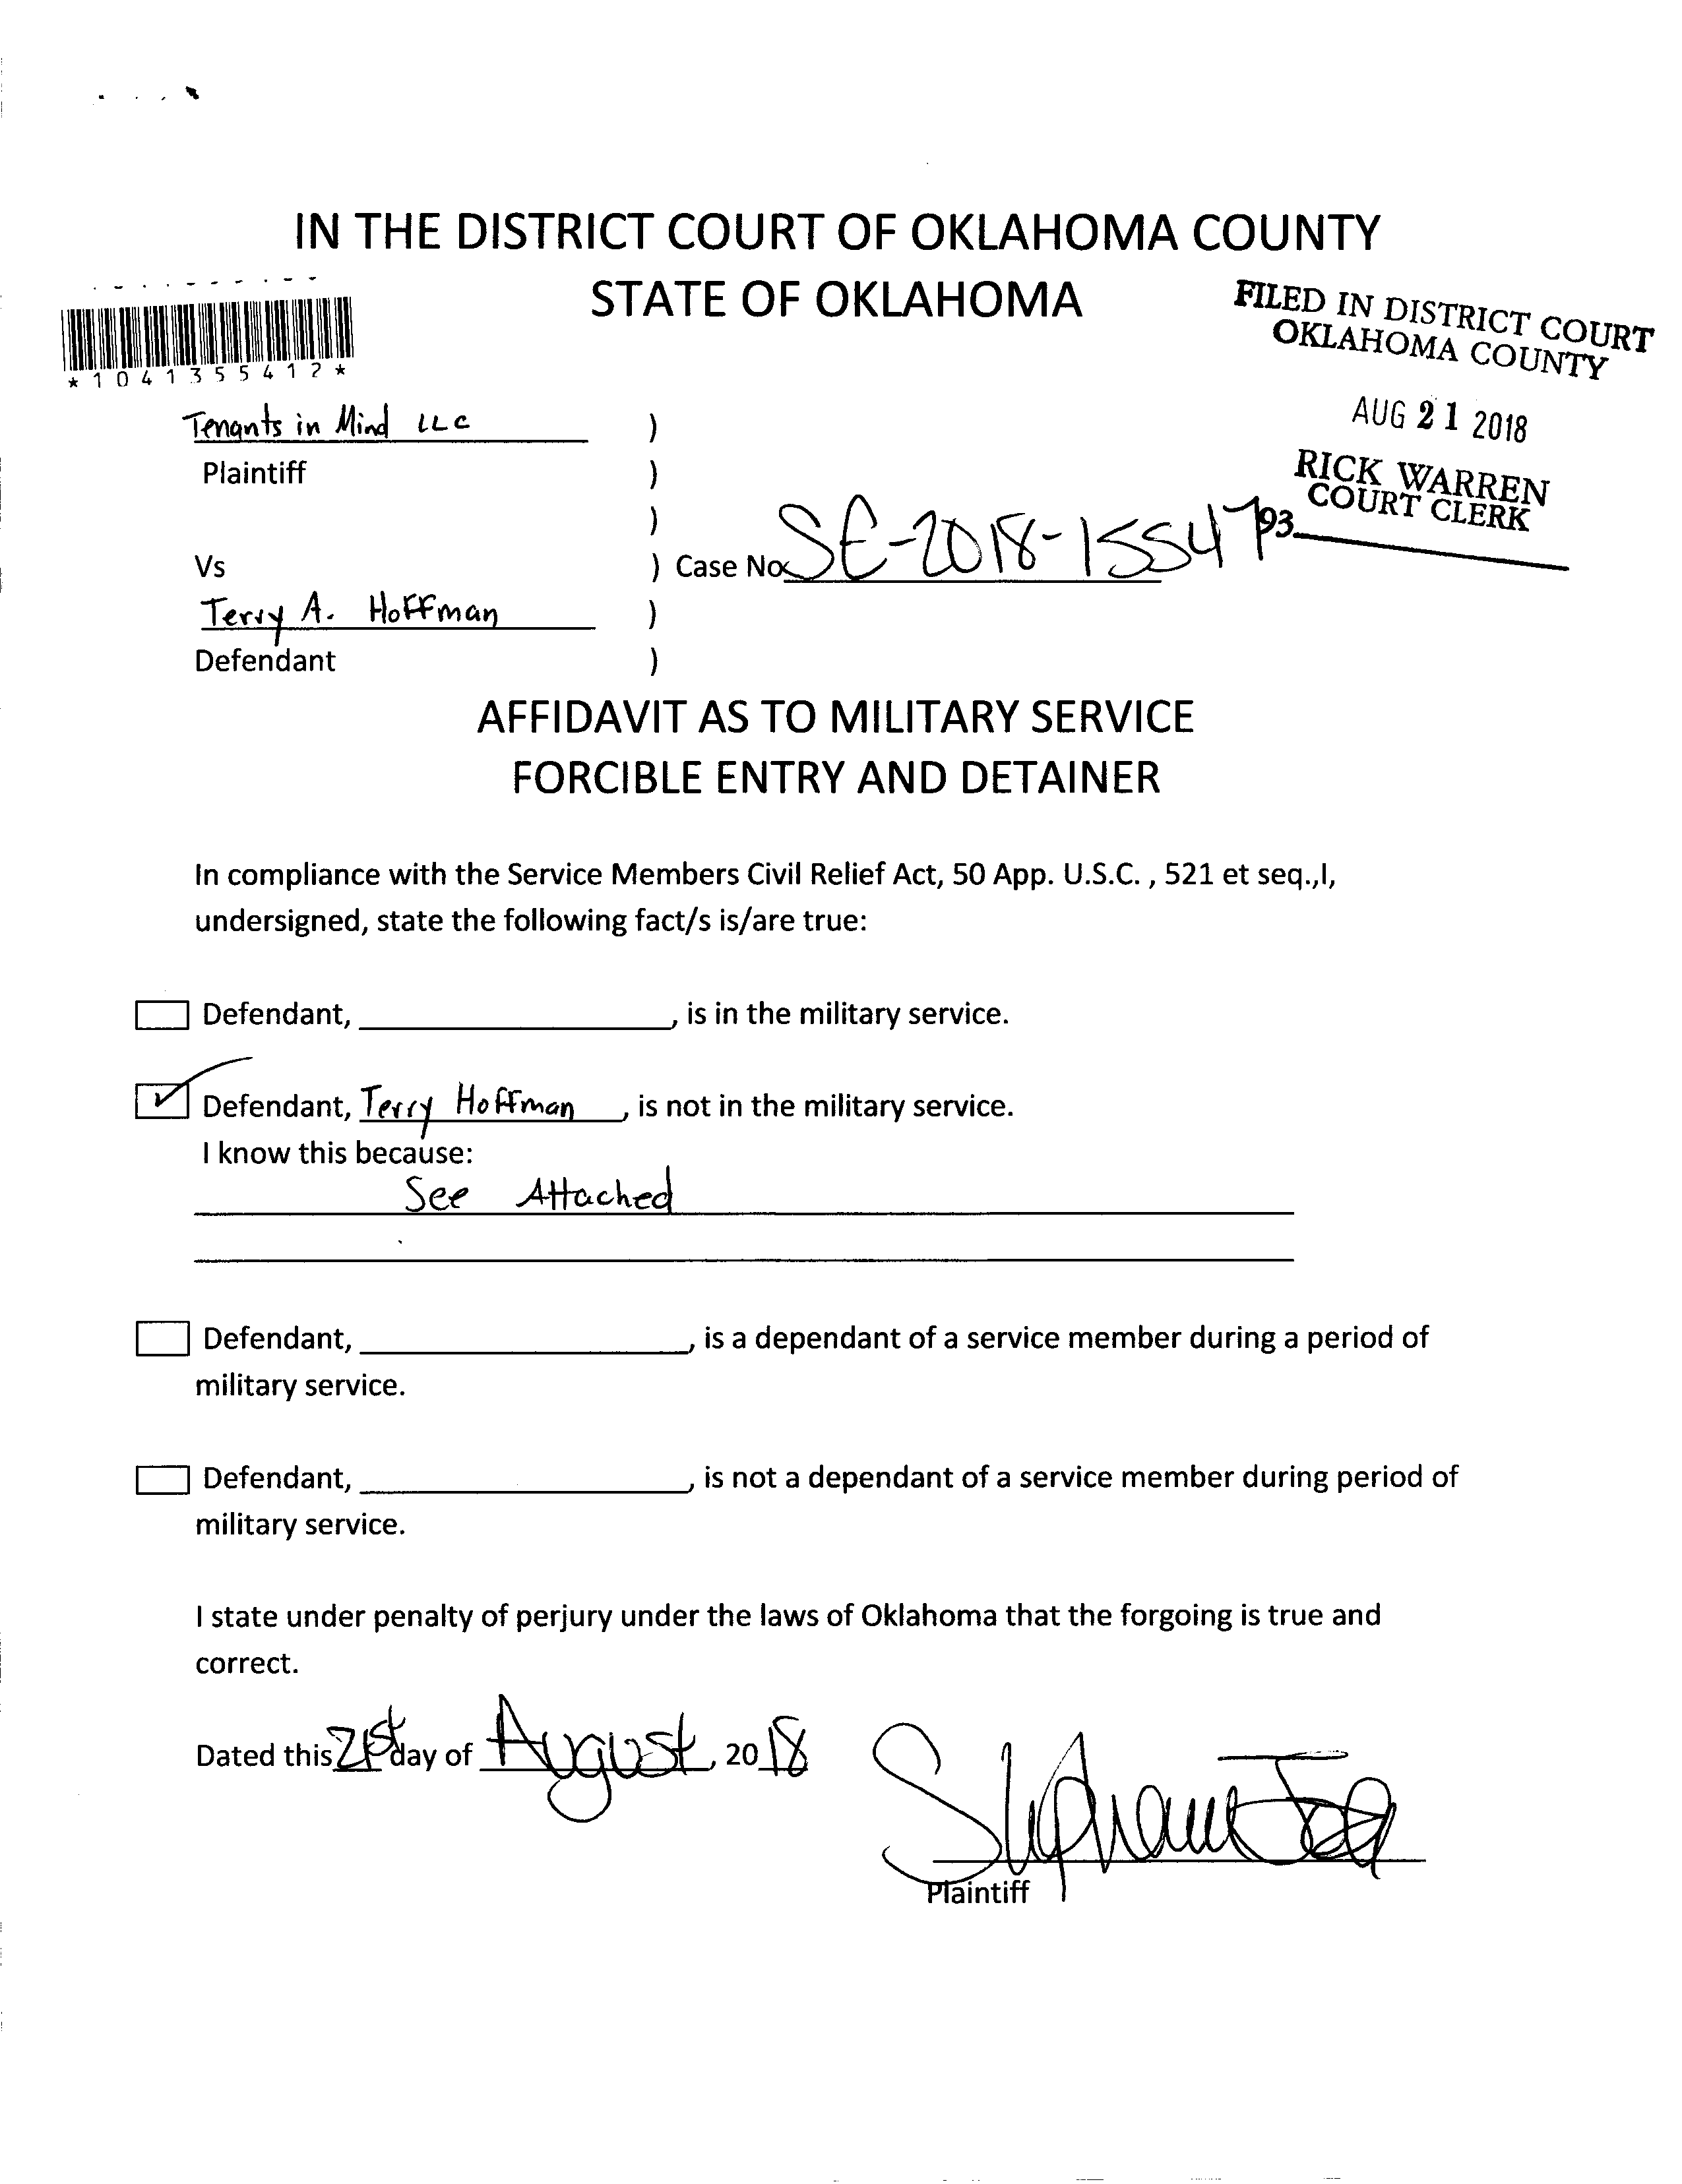 IN THE DISTRICT COURT OF OKLAHOMA COUNTY
STATE OF OKLAHOMA
FILED IN DISTRICT COURT
OKLAHOMA COUNTY
*1041355412*
AUG 21 2018
RICK WARREN
COURT CLERK
93
Tenants in Mind LLC )
Plaintiff )
)
Vs ) Case No. SC-2018-15547
Terry A. Hoffman )
Defendant )
AFFIDAVIT AS TO MILITARY SERVICE
FORCIBLE ENTRY AND DETAINER
In compliance with the Service Members Civil Relief Act, 50 App. U.S.C. , 521 et seq.,I,
undersigned, state the following fact/s is/are true:
Defendant, , is in the military service.
Defendant, Terry Hoffman , is not in the military service.
I know this because:
See Attached
Defendant, , is a dependant of a service member during a period of
military service.
Defendant, , is not a dependant of a service member during period of
military service.
I state under penalty of perjury under the laws of Oklahoma that the forgoing is true and
correct.
Dated this 21st day of August, 2018
Plaintiff